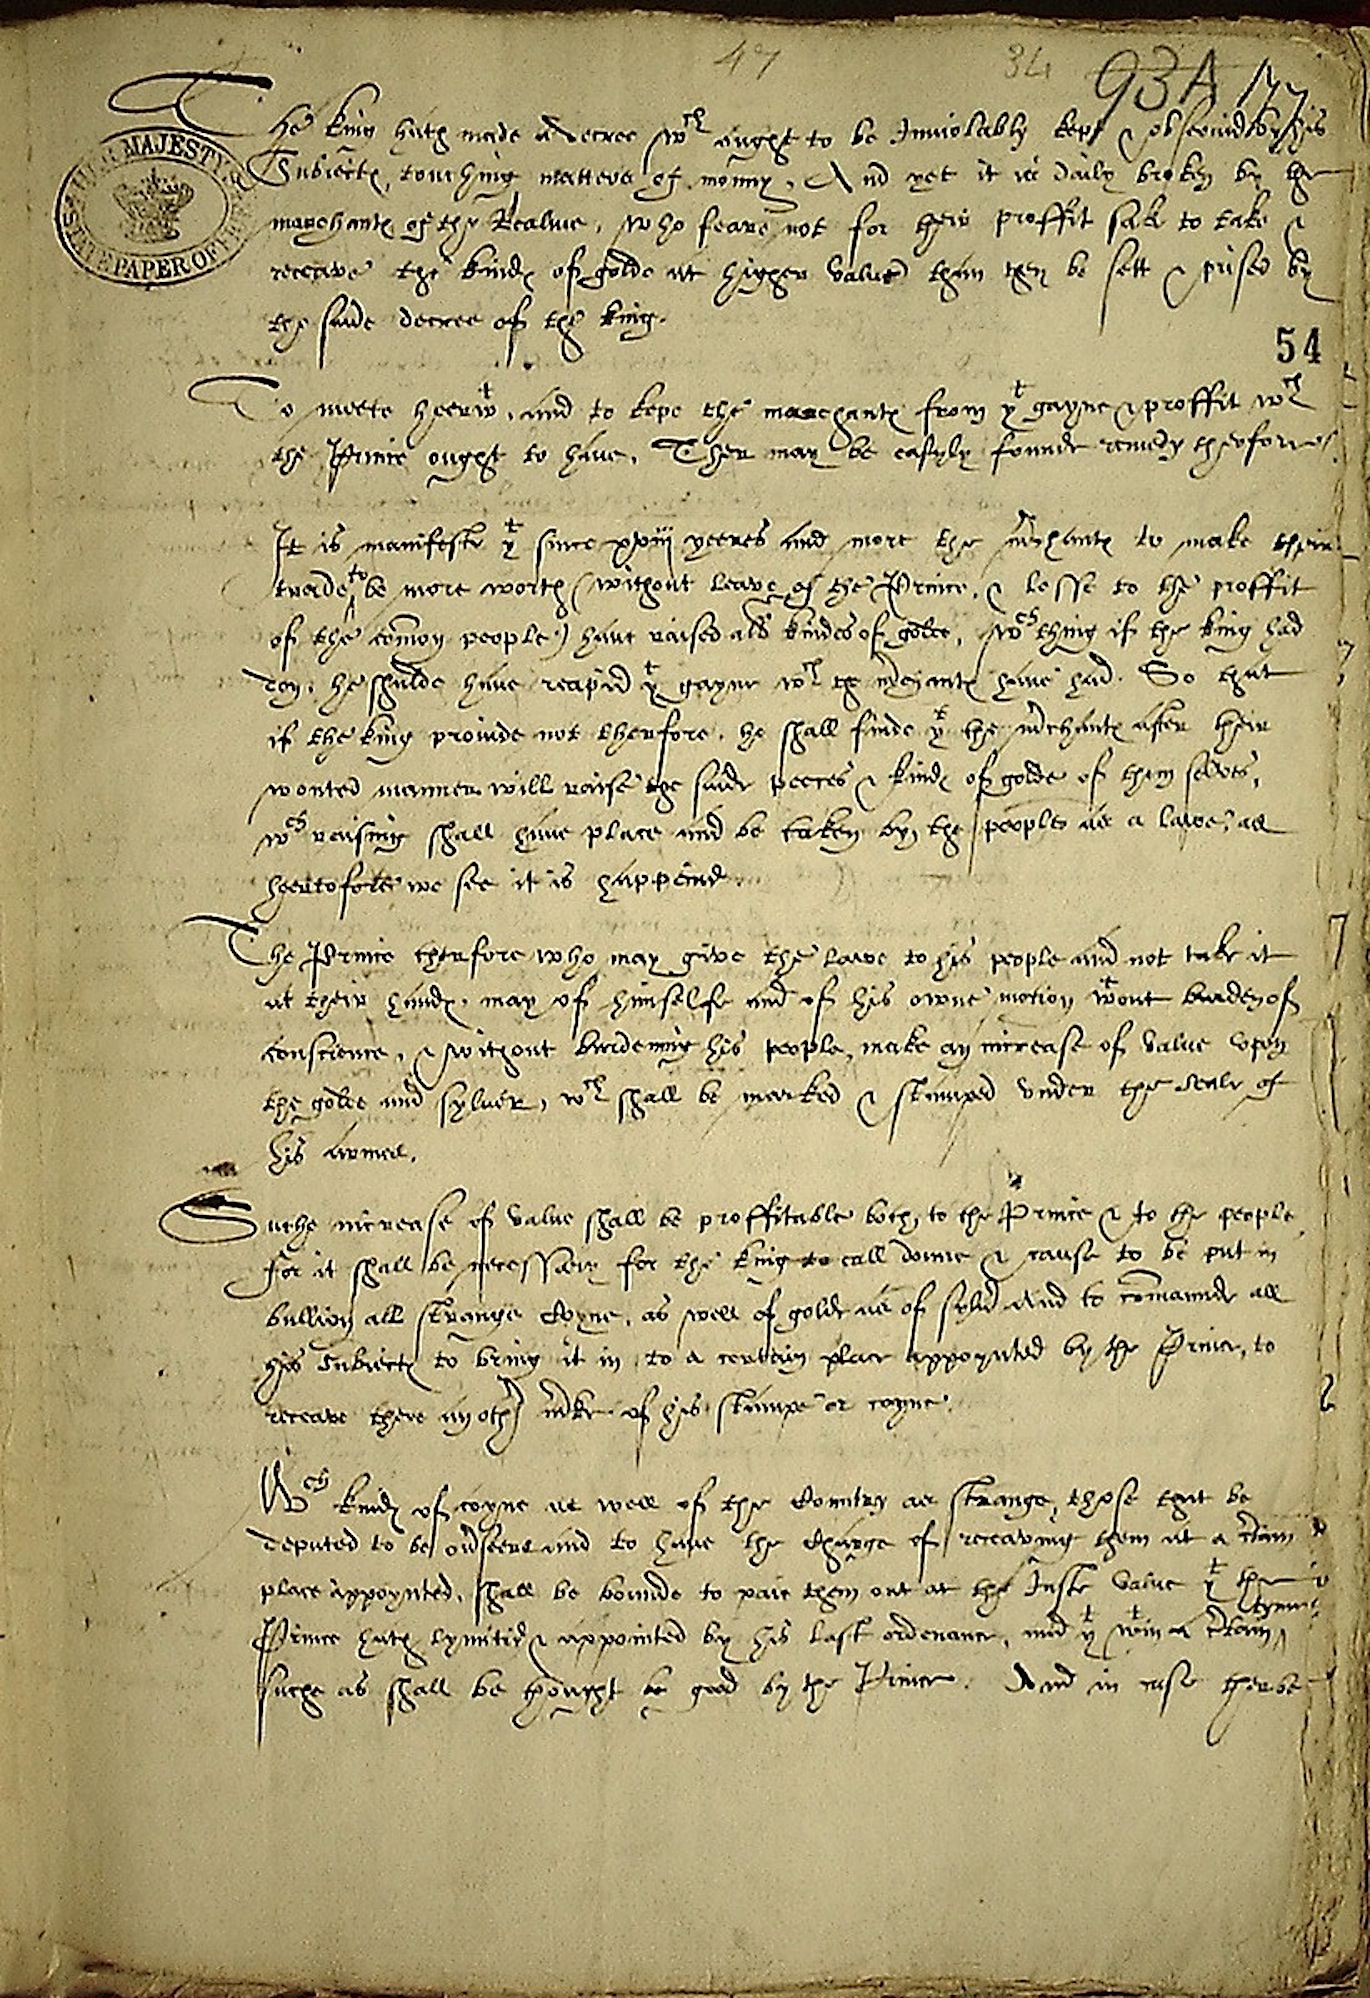 47 34 93A 177
The king hath made a decree wch ought to be Inviolably kept & observid by his
HER MAJESTY'S STATE PAPER OFFICE
Subiects, touching matters of monny. And yet it is daily broken by the
marchants of thy Realme, who feare not for their proffit sake to take &
receave the kinds of golde at higher value than they be sett & prised by
the saide decree of the king.
54
To meete heerwt, and to kepe the marchants from yt gayne & proffit wch
the Prince ought to have. Ther may be easyly founde remedy therfore.
It is manifeste yt since xxviij yeeres and more the mrchants to make their
trade to be more worth (without leave of the Prince, & losse to the proffit
of the comon people) have raised als kindes of golde, wch thing if the king had
don, he shulde have reapid yt gayne wch the mrchants have had. So that
if the king provide not therfore, he shall finde yt the mrchants after their
wonted manner will raise the saide peeces & kinds of golde of them selves,
wch raising shall have place and be taken by the people as a lawe, as
heertofore we see it is happend.
The Prince therfore who may give the lawe to his people and not take it
at their hands, may of himselfe and of his owne motion wtout burden of
conscience, & without burdening his people, make an increase of value upon
the golde and sylver, wch shall be marked & stamped under the seale of
his armes.
Suche increase of value shall be proffitable both to the Prince & to the people
for it shall be necessary for the king to call downe & cause to be put in
bullion all strange Coyne, as well of golde as of sylvr And to comaunde all
his Subiects to bring it in to a certain place appoynted by the Prince, to
receave there an othr mrke of his stampe or coyne.
Wch kinds of coyne as well of the Countrey as strange, those that be
deputed to be ovrseers and to have the charge of receaving them at a crtain
place appoynted, shall be bounde to paie them out at the Juste value yt the
tyme
Prince hath lymitid & appointed by his last ordenance, and yt wtin a crtain
suche as shall be thought good by the Prince. And in case ther be